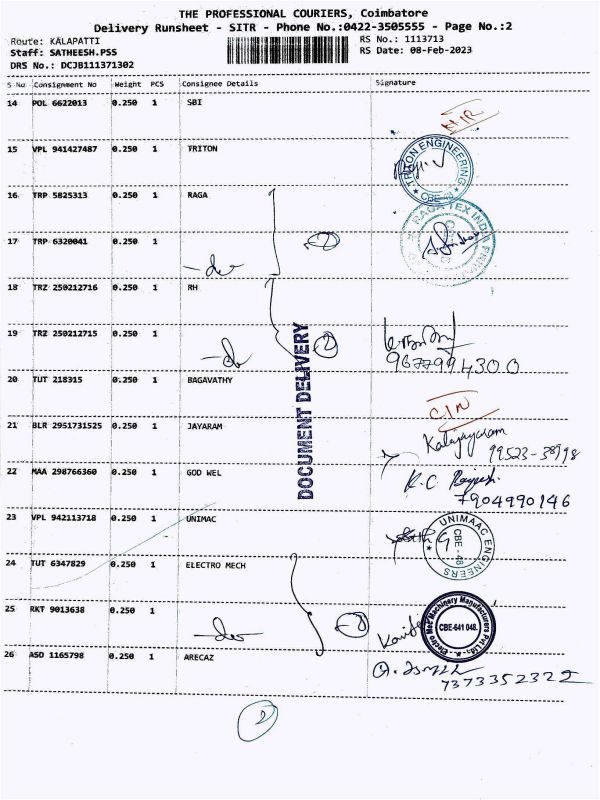 THE PROFESSIONAL COURIERS, Coimbatore
Delivery Runsheet - SITR - Phone No.:0422-3505555 - Page No.:2
Route: KALAPATTI
RS No.: 1113713
Staff: SATHEESH.PSS
RS Date: 08-Feb-2023
DRS No.: DCJB111371302
S No Consignment No Weight PCS Consignee Details Signature
14 POL 6622013 0.250 1 SBI
15 VPL 941427487 0.250 1 TRITON
TRITON ENGINEERING
CBE-48
16 TRP 5825313 0.250 1 RAGA
RAGA TEX INDIA
17 TRP 6320041 0.250 1
18 TRZ 250212716 0.250 1 RH
19 TRZ 250212715 0.250 1
9677994300
20 TUT 218315 0.250 1 BAGAVATHY
DOCUMENT DELIVERY
21 BLR 2951731525 0.250 1 JAYARAM
22 MAA 298766360 0.250 1 GOD WEL
7904990146
23 VPL 942113718 0.250 1 UNIMAC
UNIMAAC ENGINEERS
CBE - 48
24 TUT 6347829 0.250 1 ELECTRO MECH
25 RKT 9013638 0.250 1
Electro Mec Machinery Manufacturers Pvt Ltd.
CBE-641 048.
26 ASD 1165798 0.250 1 ARECAZ
7373352322
2